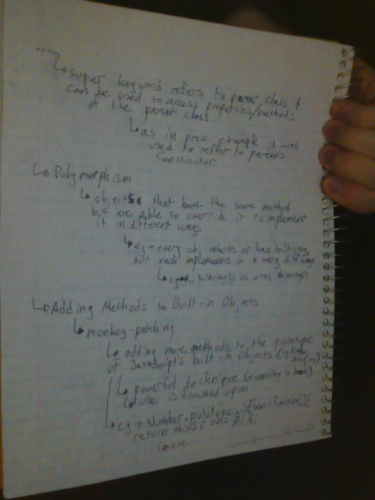 ↳ super keyword refers to parent class &
can be used to access properties/methods
of the parent class
↳ as in prev. example it was
used to refer to parent's
constructor
↳ Polymorphism
↳ objects that have the same method
but are able to override it to implement
it in different ways
↳ eg → every obj has toString,
but each implements it in very diff ways
↳ eg → toString()
↳ Adding Methods to Built-in Objects
↳ monkey-patching
↳ adding more methods to the prototype
of JavaScript's built-in Objects
↳ powerful technique
↳ use is frowned upon
↳ eg → Number.prototype.isEven = function(){
return this % 2 === 0; };
↳ etc